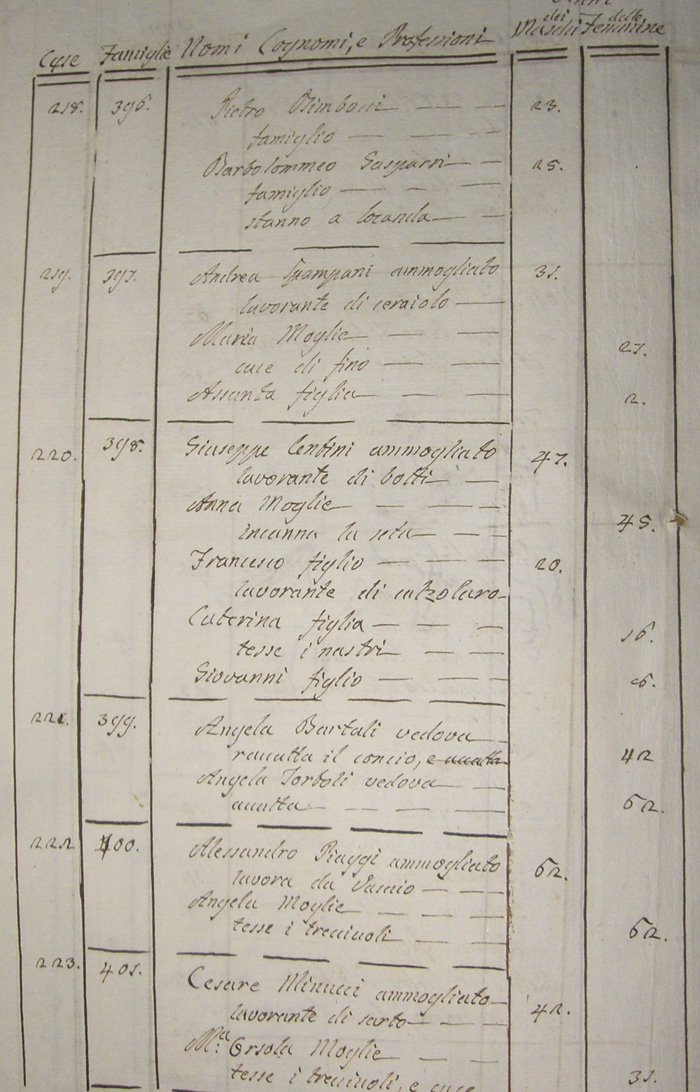 Anni
Case Famiglie Nomi Cognomi, e Professioni dei Maschi delle Femmine
218. 396. Pietro Bimbocci 23.
famiglio
Bartolommeo Gasparri 25.
famiglio
stanno a locanda
219. 397. Andrea Giampani ammogliato 31.
lavorante di ceraiolo
Maria Moglie 27.
cuce di fino
Assunta figlia 2.
220. 398. Giuseppe Centini ammogliato 47.
lavorante di botti
Anna Moglie 45.
incanna la seta
Francesco figlio 20.
lavorante di calzolaro
Caterina figlia 16.
tesse i nastri
Giovanni figlio 6.
221. 399. Angela Bartali vedova
raccatta il concio, e accatta 42
Angela Torboli vedova
accatta 62.
222 400. Alessandro Piaggi ammogliato 62.
lavora da
Angela Moglie
tesse i treciuoli 62.
223. 401. Cesare Minucci ammogliato 42.
lavorante di sarto
M.a Orsola Moglie
tesse i treciuoli, e cuce 31.